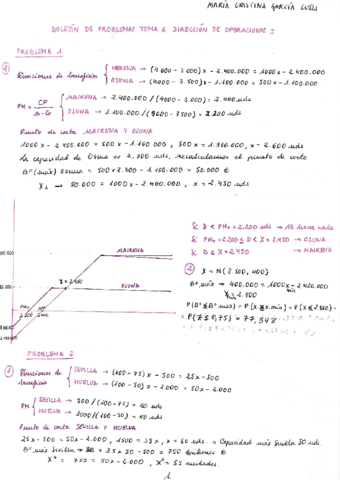 MARÍA CRISTINA GARCÍA
BOLETÍN DE PROBLEMAS TEMA 6 DIRECCIÓN DE OPERACIONES I
PROBLEMA 1
① Funciones de beneficio
MAIRENA → (4000 - 3.000)x - 2.400.000 = 1000x - 2.400.000
OSUNA → (4000 - 3.500)x - 1.100.000 = 500x - 1.100.000
PM = CF
MAIRENA → 2.400.000 / (4000 - 3.000) = 2.400 uds
OSUNA → 1.100.000 / (4000 - 3500) = 2.200 uds
Punto de corte MAIRENA Y OSUNA
1000x - 2.400.000 = 500x - 1.100.000, 500x = 1.300.000, x = 2.600 uds
La capacidad de Osuna es 2.300 uds, recalculamos el punto de corte
Bº (máx) Osuna = 500 x 2.300 - 1.100.000 = 50.000 €
50.000 = 1000x - 2.400.000, x = 2.450 uds
MAIRENA
OSUNA
x = 2.450
Si D < PM₀ = 2.200 uds → no hacer nada
Si PM₀ = 2.200 ≤ D < X = 2.450 → OSUNA
Si D ≥ X = 2.450 → MAIRENA
② X = N(2.500, 400)
Bº mín → 400.000 = 1000x mín - 2.400.000
x mín = 2.800
PROBLEMA 2
① Funciones de beneficio
SEVILLA → (100 - 75)x - 500 = 25x - 500
HUELVA → (100 - 50)x - 2.000 = 50x - 2.000
PM
SEVILLA → 500 / (100 - 75) = 20 uds
HUELVA
= 40 uds
Punto de corte SEVILLA Y HUELVA
25x - 500 = 50x - 2.000, 1500 = 25x, x = 60 uds. > Capacidad máx Sevilla 50 uds
Bº máx Sevilla → 25 x 50 - 500 = 750
Xº → 750 = 50x - 2.000, Xº = 55 unidades.
1